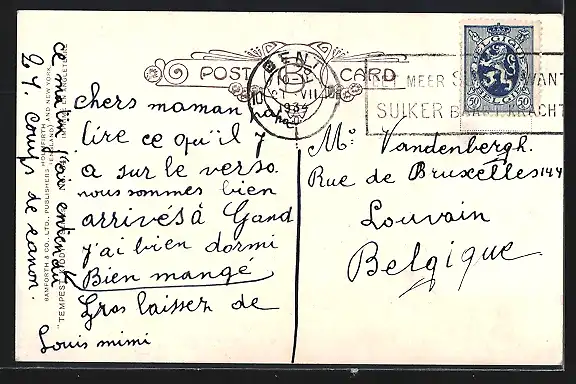 POST CARD
GENT
10
VII
1934
BELGIQUE BELGIË
50 50
MEER
SUIKER BAART KRACHT
chers maman
lire ce qu'il y
a sur le verso.
nous sommes bien
arrivés à Gand
j'ai bien dormi
Bien mangé
Gros baisser de
Louis mimi
ce matin j'ais entendu
24. coups de canon.
Mr. Vandenbergh.
Rue de Bruxelles 144
Louvain
Belgique
BAMFORTH & CO., LTD., PUBLISHERS HOLMFIRTH AND NEW YORK
(ENGLAND)
"TEMPEST